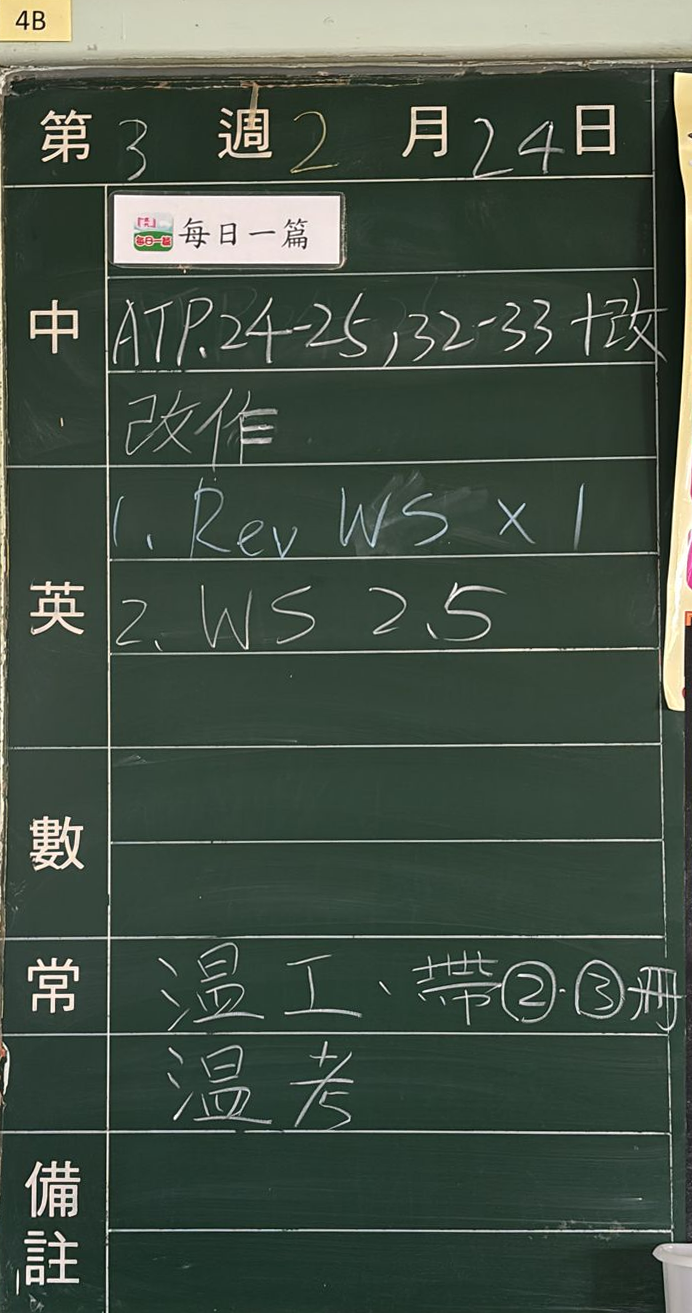 4B
第3週2月24日
每日一篇
中
ATP.24-25,32-33+改
改作
英
1. Rev WS x 1
2. WS 2.5
數
常
溫工、帶②·③冊
溫考
備註